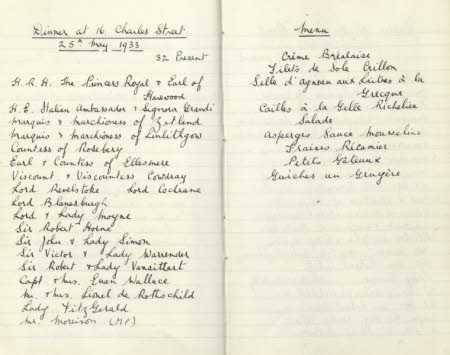 Dinner at 16 Charles Street
25th May 1933
32 Present
H.R.H. The Princess Royal & Earl of
Harewood
H.E. Italian Ambassador & Signora Grandi
Marquis & Marchioness of Zetland
Marquis & Marchioness of Linlithgow
Countess of Rosebery
Earl & Countess of Ellesmere
Viscount & Viscountess Cowdray
Lord Revelstoke Lord Cochrane
Lord Blanesburgh
Lord & Lady Moyne
Sir Robert Horne
Sir John & Lady Simon
Sir Victor & Lady Warrender
Sir Robert & Lady Vansittart
Capt & Mrs. Euan Wallace
Mr. & Mrs. Lionel de Rothschild
Lady FitzGerald
Mr. Morrison (M.P.)
Menu
Crème
Filets de Sole Crillon
Selle d'agneau aux Laitues à la
Grecque
Cailles à la Gelée Richelieu
Salade
Asperges Sauce Mousseline
Fraises Récamier
Petits Gâteaux
Quiches au Gruyère